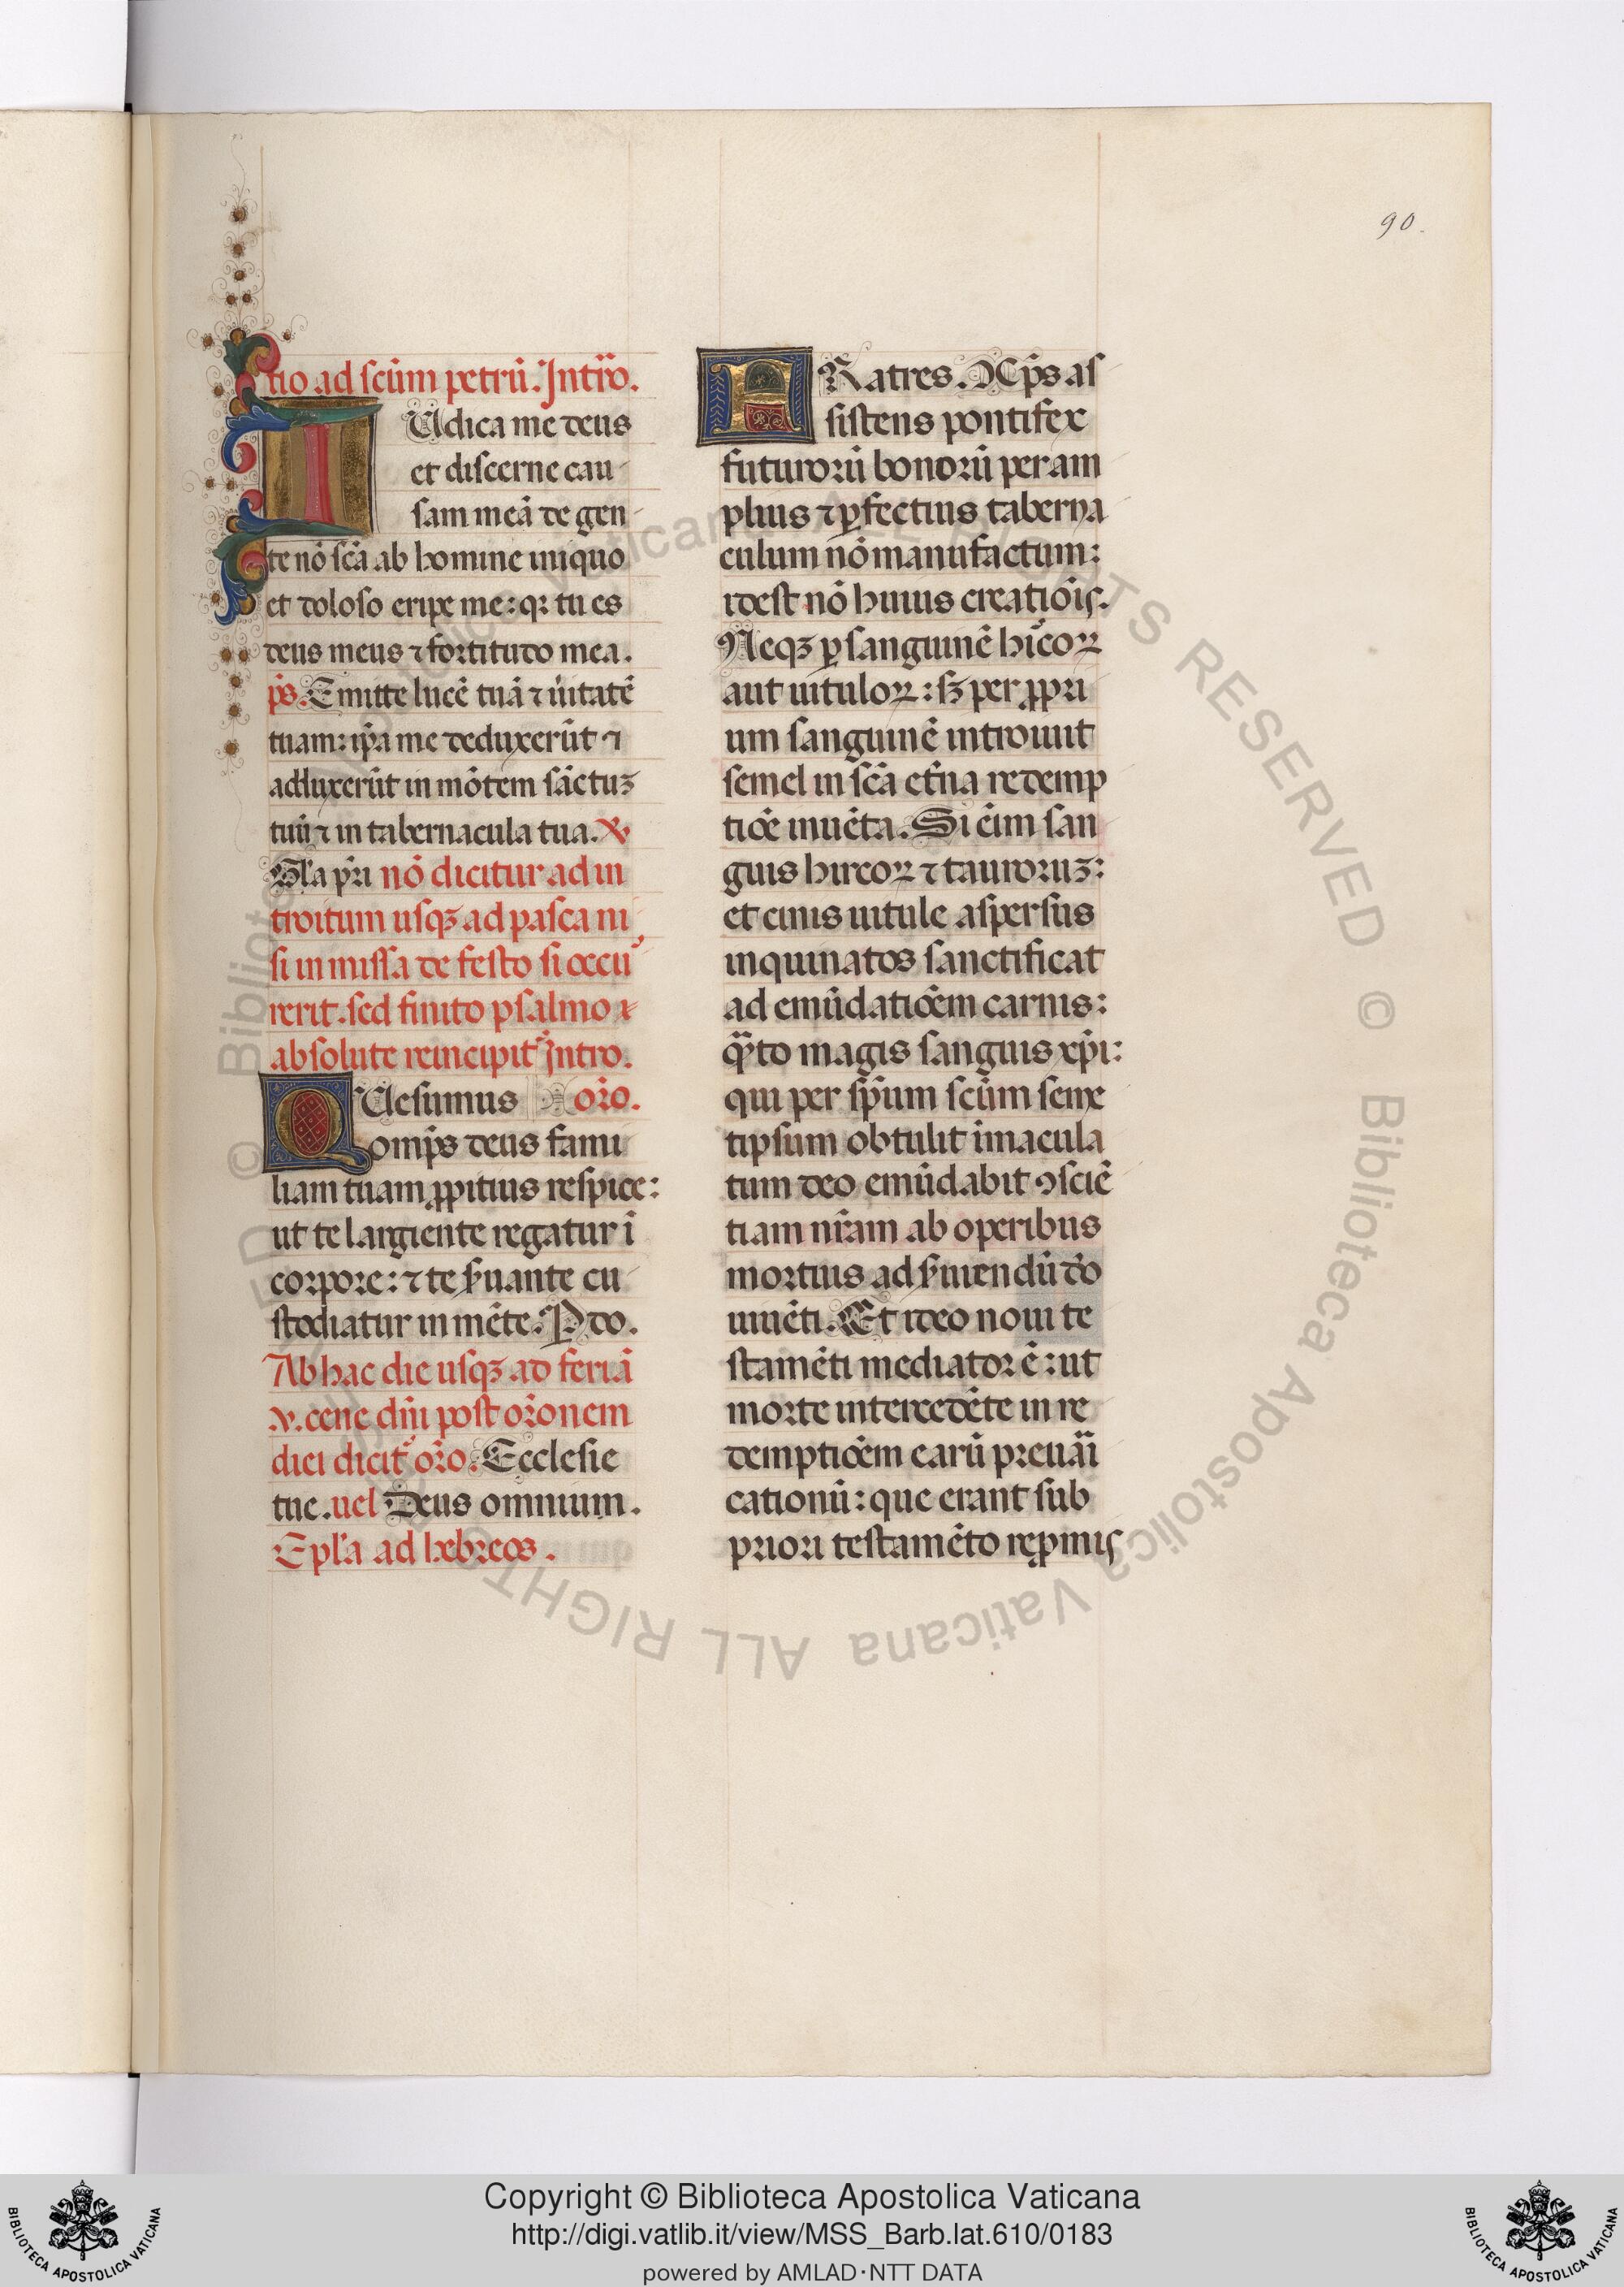 90.
tio ad scm̄ petrū. Intro.
IUdica me deus
et discerne cau
sam meā de gen
te nō scā ab homine iniquo
et doloso eripe me: q; tu es
deus meus ⁊ fortitudo mea.
p̄s. Emitte lucē tuā ⁊ ūitatē
tuam: ip̄a me deduxerūt ⁊
adduxerūt in mōtem sāctuꝫ
tuū ⁊ in tabernacula tua. ℣
Gl̄a pr̄i nō dicitur ad in
troitum usqꝫ ad pasca ni
si in missa de festo si occu
rerit. sed finito psalmo ⁊
absolute reincipit̄ Intro.
QUesumus oro.
omp̄s deus fami
liam tuam ꝓpitius respice:
ut te largiente regatur ī
corpore: ⁊ te s̄uante cu
stodiatur in mēte. P do.
Ab hac die usqꝫ ad feriā
v. cene dn̄i post orōnem
diei dicit̄ oro. Ecclesie
tue. uel Deus omnium.
Epl̄a ad hebreos.
FRatres. Xp̄s as
sistens pontifex
futurorū bonorū per am
plius ⁊ ꝑfectius taberna
culum nō manufactum:
idest nō huius creatiōis.
Neqꝫ ꝑ sanguinē hīcoꝝ
aut uituloꝝ: sꝫ per ꝓpri
um sanguinē introiuit
semel in scā et̄na redemp
tiōe inuēta. Si eīm san
guis hircoꝝ ⁊ tauroruꝫ:
et cinis uitule aspersus
inquinatos sanctificat
ad emūdatiōem carnis:
q̄to magis sanguis xp̄i:
qui per sp̄um scūm seme
tipsum obtulit īmacula
tum deo emūdabit ꝯsciē
tiam nr̄am ab operibus
mortuis ad s̄uiendū dō
uiuēti. Et ideo noui te
stamēti mediator ē: ut
morte intercedēte in re
demptiōem earū preuāi
cationū: que erant sub
priori testamēto reꝓmis
Copyright © Biblioteca Apostolica Vaticana
http://digi.vatlib.it/view/MSS_Barb.lat.610/0183
powered by AMLAD·NTT DATA
BIBLIOTECA APOSTOLICA VATICANA
BIBLIOTECA APOSTOLICA VATICANA
© Biblioteca Apostolica Vaticana ALL RIGHTS RESERVED © Biblioteca Apostolica Vaticana ALL RIGHTS RESERVED